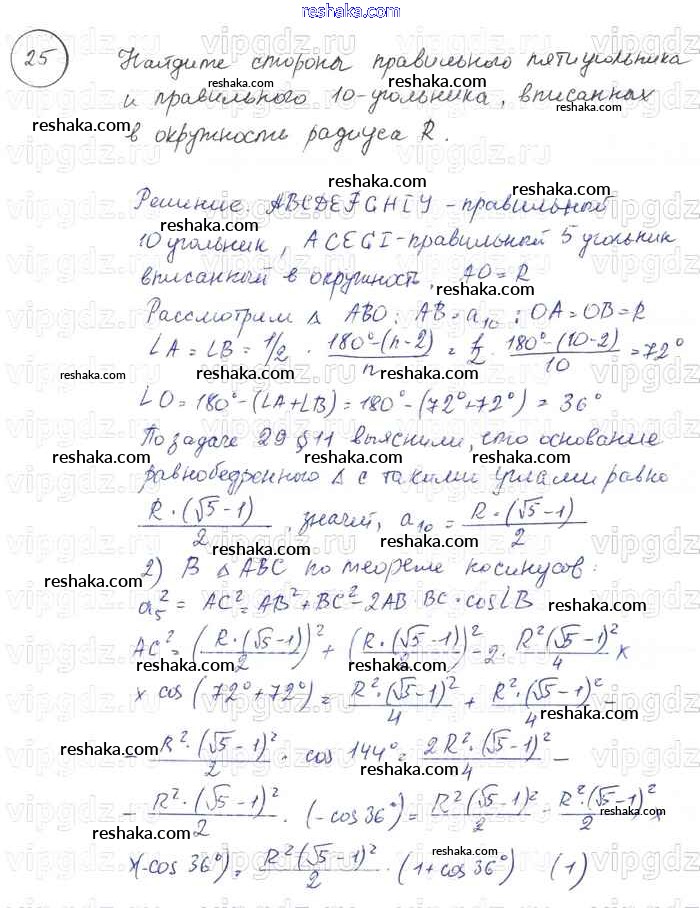 reshaka.com
25 Найдите стороны правильного пятиугольника
и правильного 10-угольника, вписанных
в окружности радиуса R.
Решение. ABCDEFGHIY - правильный
10 угольник, ACEGI - правильный 5 угольник
вписанный в окружность, AO = R
Рассмотрим △ ABO: AB = a₁₀ ; OA = OB = R
∠A = ∠B = 1/2 · 180°·(n-2)/n = 1/2 · 180°·(10-2)/10 = 72°
∠O = 180° - (∠A+∠B) = 180° - (72°+72°) = 36°
По задаче 29 §11 выяснили, что основание
равнобедренного △ с такими углами равно
R·(√5-1)/2, значит, a₁₀ = R·(√5-1)/2
2) В △ ABC по теореме косинусов:
a₅² = AC² = AB² + BC² - 2AB·BC·cos∠B
AC² = (R·(√5-1)/2)² + (R·(√5-1)/2)² - 2· R²(√5-1)²/4 ×
× cos(72°+72°) = R²·(√5-1)²/4 + R²·(√5-1)²/4 -
- R²·(√5-1)²/2 · cos 144° = 2R²·(√5-1)²/4 -
- R²·(√5-1)²/2 · (-cos 36°) = R²(√5-1)²/2 - R²·(√5-1)²/2 ×
×(-cos 36°) = R²(√5-1)²/2 · (1+cos 36°) (1)